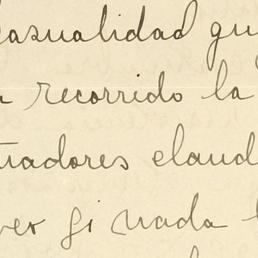 casualidad qu
recorrido la
adores claud
ver si nada